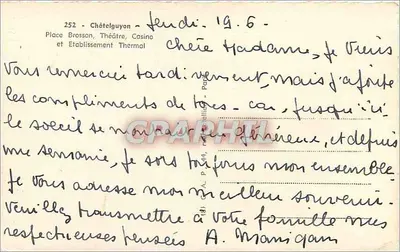 252 - Châtelguyon - Jeudi. 19.6-
Place Brosson, Théâtre, Casino
et Établissement Thermal
Chère Madame, Je viens
vous remercier tardivement, mais j'ajoute
les compliments de tres- car, jusqu'ici
le soleil se montrait généreux, et depuis
une semaine, je sors toujours mon ensemble-
Je vous adresse mon meilleur souvenir.
Veuillez transmettre à votre famille mes
respectueuses pensées A.
CARTAPHILIE